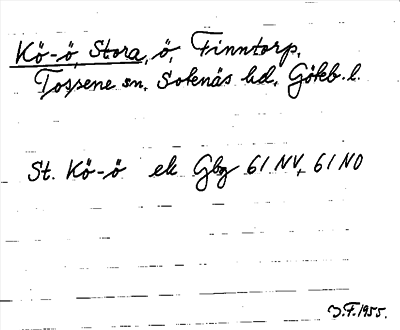 Kö-ö, Stora, ö, Finntorp.
Tossene sn. Sotenäs hd. Göteb. l.
St. Kö-ö ek Gbg 61 NV, 61 NO
J.F. 1955.